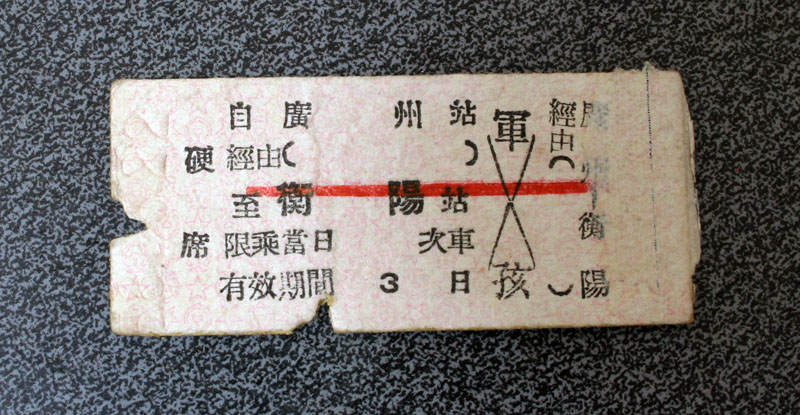 自廣州站
硬 經由( )
至衡陽站
席 限乘當日 次車
有效期間 3 日
軍
孩
經由( )
廣州
衡陽